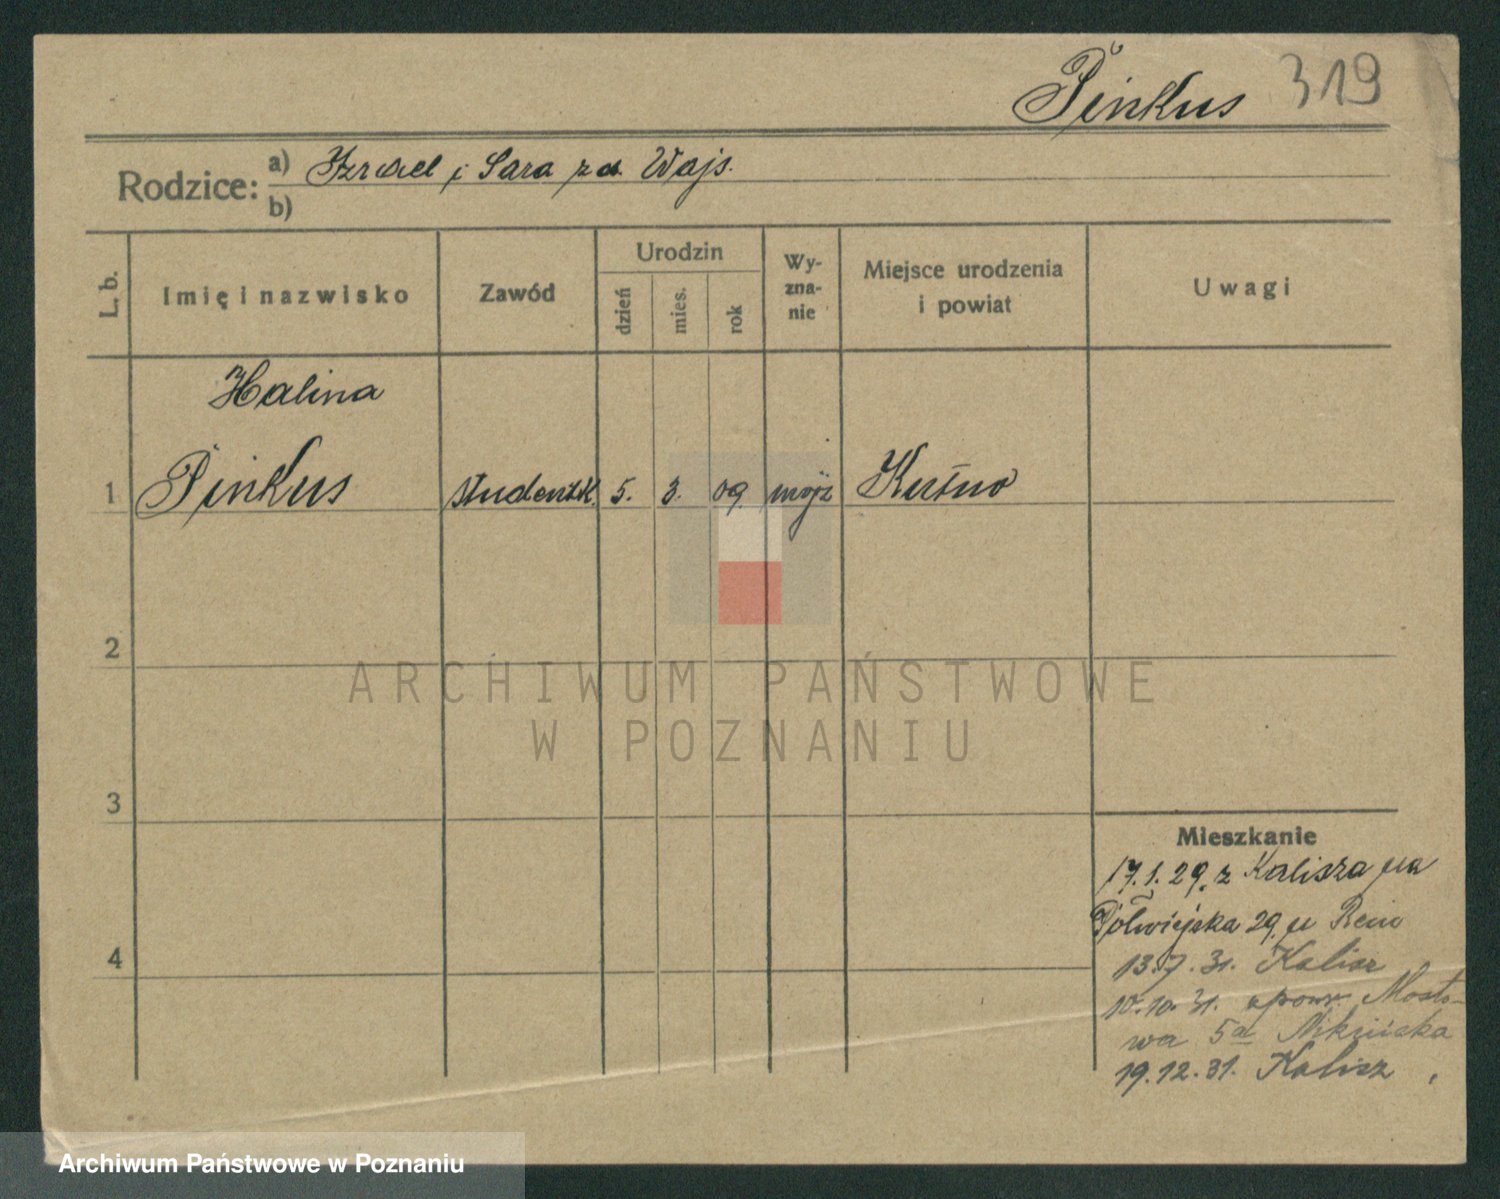 Pinkus 319
Rodzice: a) Izrael i Sara z d. Wajs.
b)
L. b. Imię i nazwisko Zawód Urodzin dzień mies. rok Wy-zna-nie Miejsce urodzenia i powiat Uwagi
Halina
1 Pinkus studentk. 5. 3. 09. mojż Kutno
2
ARCHIWUM PAŃSTWOWE
W POZNANIU
3
Mieszkanie
17.1.29. z Kalisza na
Półwiejska 29. u
4
13.7.31. Kalisz
10.10.31. Mosto-
wa 5a
19.12.31. Kalisz
Archiwum Państwowe w Poznaniu